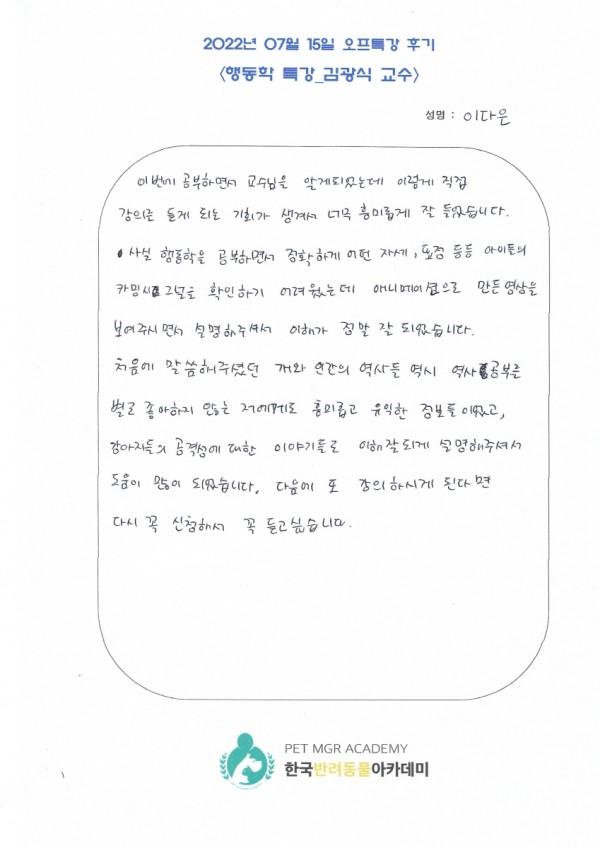 2022년 07월 15일 오프특강 후기
<행동학 특강_김광식 교수>
성명 : 이다은
이번에 공부하면서 교수님을 알게되었는데 이렇게 직접
강의로 듣게 되는 기회가 생겨서 너무 흥미롭게 잘 들었습니다.
사실 행동학을 공부하면서 정확하게 어떤 자세, 표정 등등 아이들의
카밍시그널을 확인하기 어려웠는데 애니메이션으로 만든영상을
보여주시면서 설명해주셔서 이해가 정말 잘 되었습니다.
처음에 말씀해주셨던 개와 인간의 역사들 역시 역사공부를
별로 좋아하지 않는 저에게도 흥미롭고 유익한 정보들이었고,
강아지들의 공격성에 대한 이야기들로 이해잘되게 설명해주셔서
도움이 많이 되었습니다. 다음에 또 강의하시게 된다면
다시 꼭 신청해서 꼭 듣고싶습니다.
PET MGR ACADEMY
한국반려동물아카데미